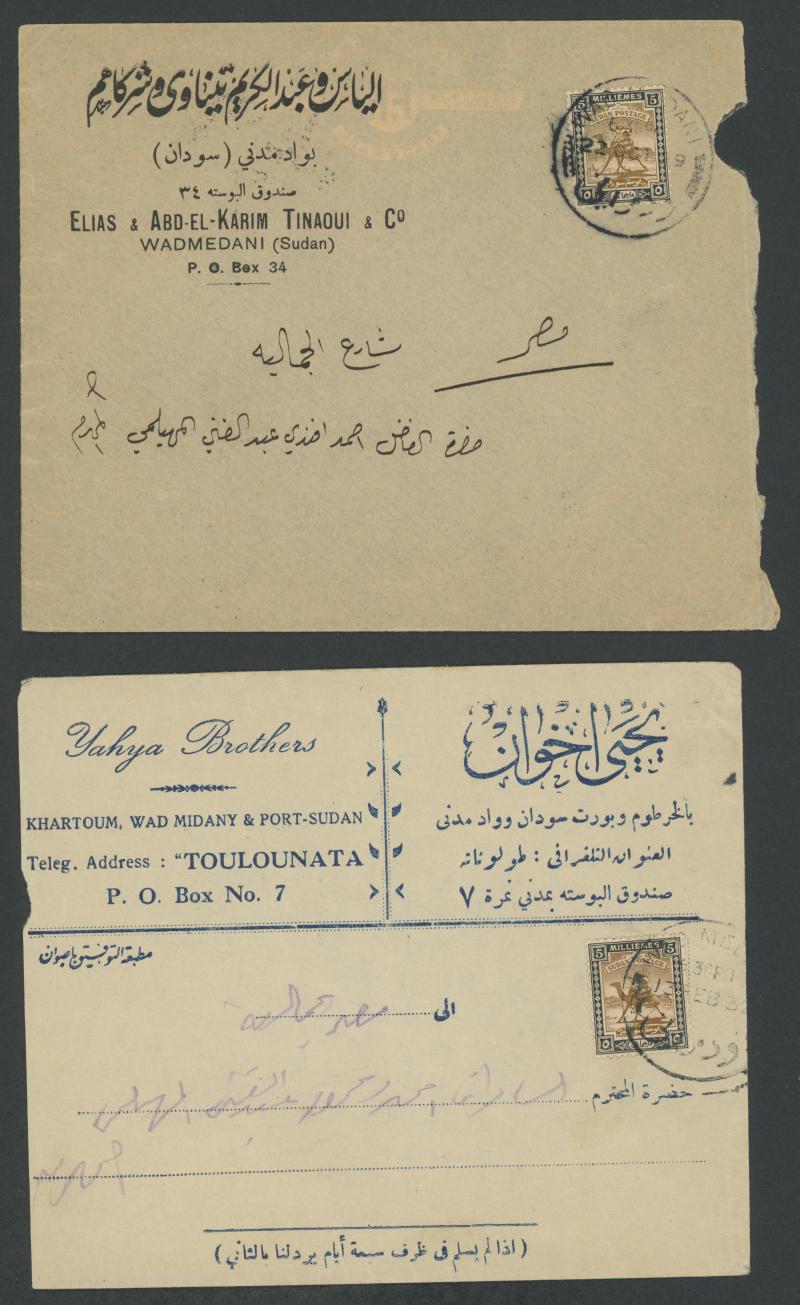 الياس وعبد الكريم تيناوى وشركاهم
بواد مدني (سودان)
صندوق البوسته ٣٤
ELIAS & ABD-EL-KARIM TINAOUI & Cº
WADMEDANI (Sudan)
P. O. Box 34
5 MILLIEMES 5
SUDAN POSTAGE
مصر
شارع الجماليه
حضرة الفاضل احمد افندي عبد الغني المهيلمي المحترم
Yahya Brothers
KHARTOUM, WAD MIDANY & PORT-SUDAN
Teleg. Address : "TOULOUNATA
P. O. Box No. 7
يحيى اخوان
بالخرطوم وبورت سودان وواد مدنى
العنوان التلغرافى : طولوناته
صندوق البوسته بمدني نمرة ٧
مطبعة التوفيق باصوان
5 MILLIEMES 5
SUDAN POSTAGE
13 FEB 3
الى مصر الجماليه
حضرة المحترم
(اذا لم يسلم فى ظرف سبعة أيام يرد لنا بالثاني)